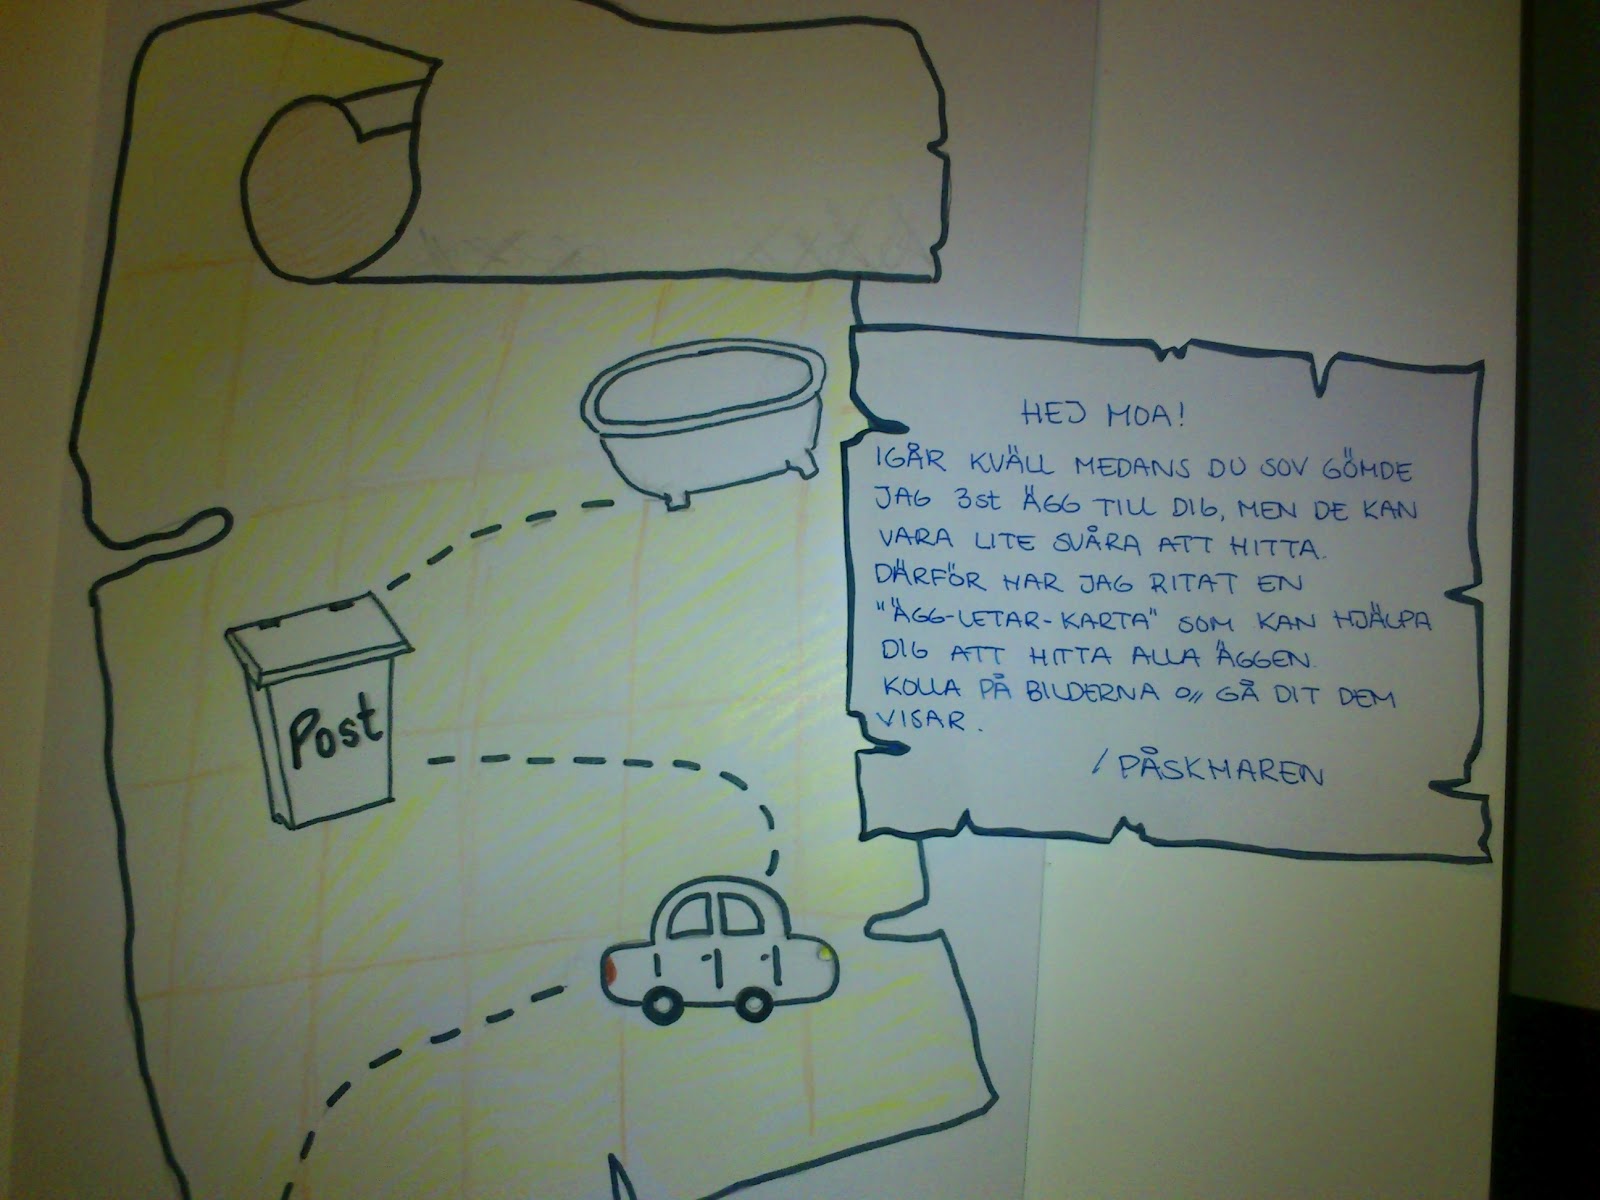 Post
HEJ MOA!
IGÅR KVÄLL MEDANS DU SOV GÖMDE
JAG 3st ÄGG TILL DIG, MEN DE KAN
VARA LITE SVÅRA ATT HITTA.
DÄRFÖR HAR JAG RITAT EN
"ÄGG-LETAR-KARTA" SOM KAN HJÄLPA
DIG ATT HITTA ALLA ÄGGEN.
KOLLA PÅ BILDERNA O,, GÅ DIT DEM
VISAR.
/PÅSKMAREN